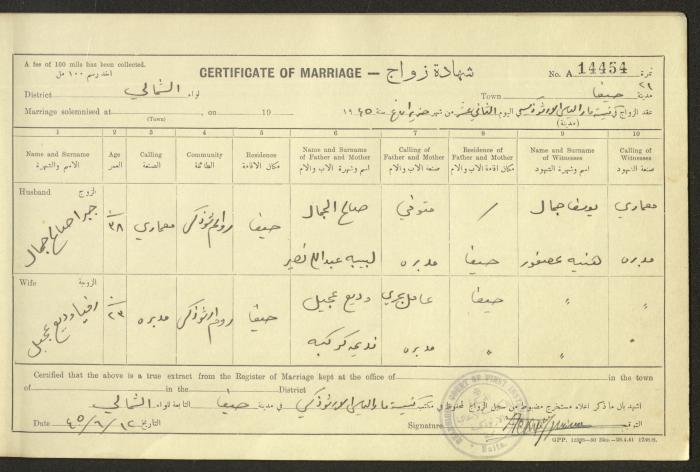 A fee of 100 mils has been collected.
اخذ رسم ١٠٠ مل
CERTIFICATE OF MARRIAGE — شهادة زواج
No. A 14454 نمرة
District الشمالي لواء
Town حيفا مدينة
Marriage solemnised at , on 19
(Town)
عقد الزواج في كنيسة مار الياس الارثوذكسي اليوم الثاني عشر من شهر حزيران سنة ١٩٤٥
(مدينة)
1 2 3 4 5 6 7 8 9 10
Name and Surname Age Calling Community Residence Name and Surname of Father and Mother Calling of Father and Mother Residence of Father and Mother Name and Surname of Witnesses Calling of Witnesses
الاسم والشهرة العمر الصنعة الطائفة مكان الاقامة اسم وشهرة الاب والام صنعة الاب والام مكان اقامة الاب والام اسم وشهرة الشهود صنعة الشهود
Husband الزوج
جبرا صالح جمال ٣٨ معماري روم ارثوذكس حيفا
صالح الجمال متوفي / يوسف جمال معماري
لبيبه عبدالله نصير مدبره حيفا هنيه عصفور مدبره
Wife الزوجة
وديع عجيل ٢٣ مدبره روم ارثوذكس حيفا
وديع عجيل عامل بحري حيفا " "
مدبره " " "
Certified that the above is a true extract from the Register of Marriage kept at the office of in the town
of in the District
اشهد بان ما ذكر اعلاه مستخرج مضبوط من سجل الزواج المحفوظ في مكتب كنيسة مار الياس الارثوذكسي في مدينة حيفا التابعة للواء الشمالي
Date ٤٥/٦/١٢ التاريخ
Signature التوقيع
Haifa